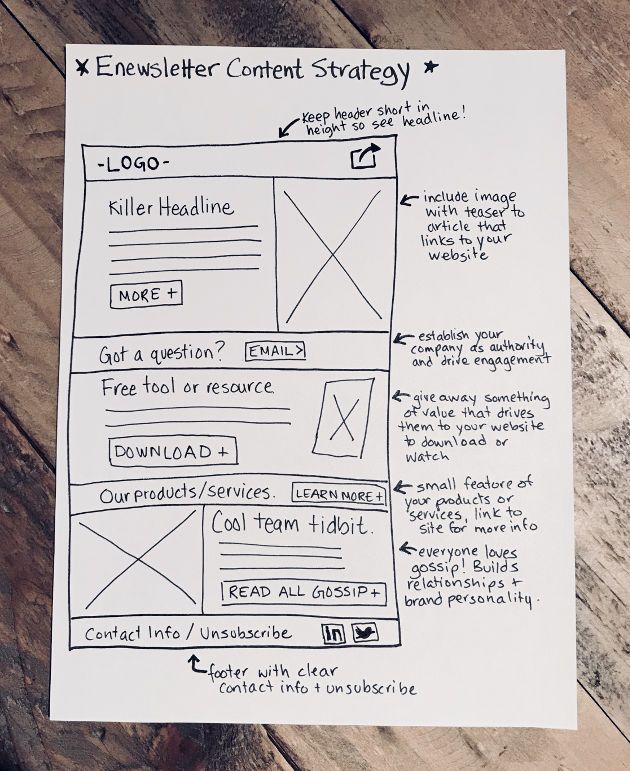 * Enewsletter Content Strategy *
Keep header short in
height so see headline!
-LOGO-
Killer Headline
MORE +
include image
with teaser to
article that
links to your
website
Got a question? EMAIL>
establish your
company as authority
and drive engagement
Free tool or resource
DOWNLOAD +
give away something
of value that drives
them to your website
to download or
watch
Our products/services. LEARN MORE +
small feature of
your products or
services, link to
site for more info
Cool team tidbit.
READ ALL GOSSIP +
everyone loves
gossip! Builds
relationships +
brand personality.
Contact Info / Unsubscribe in
footer with clear
contact info + unsubscribe